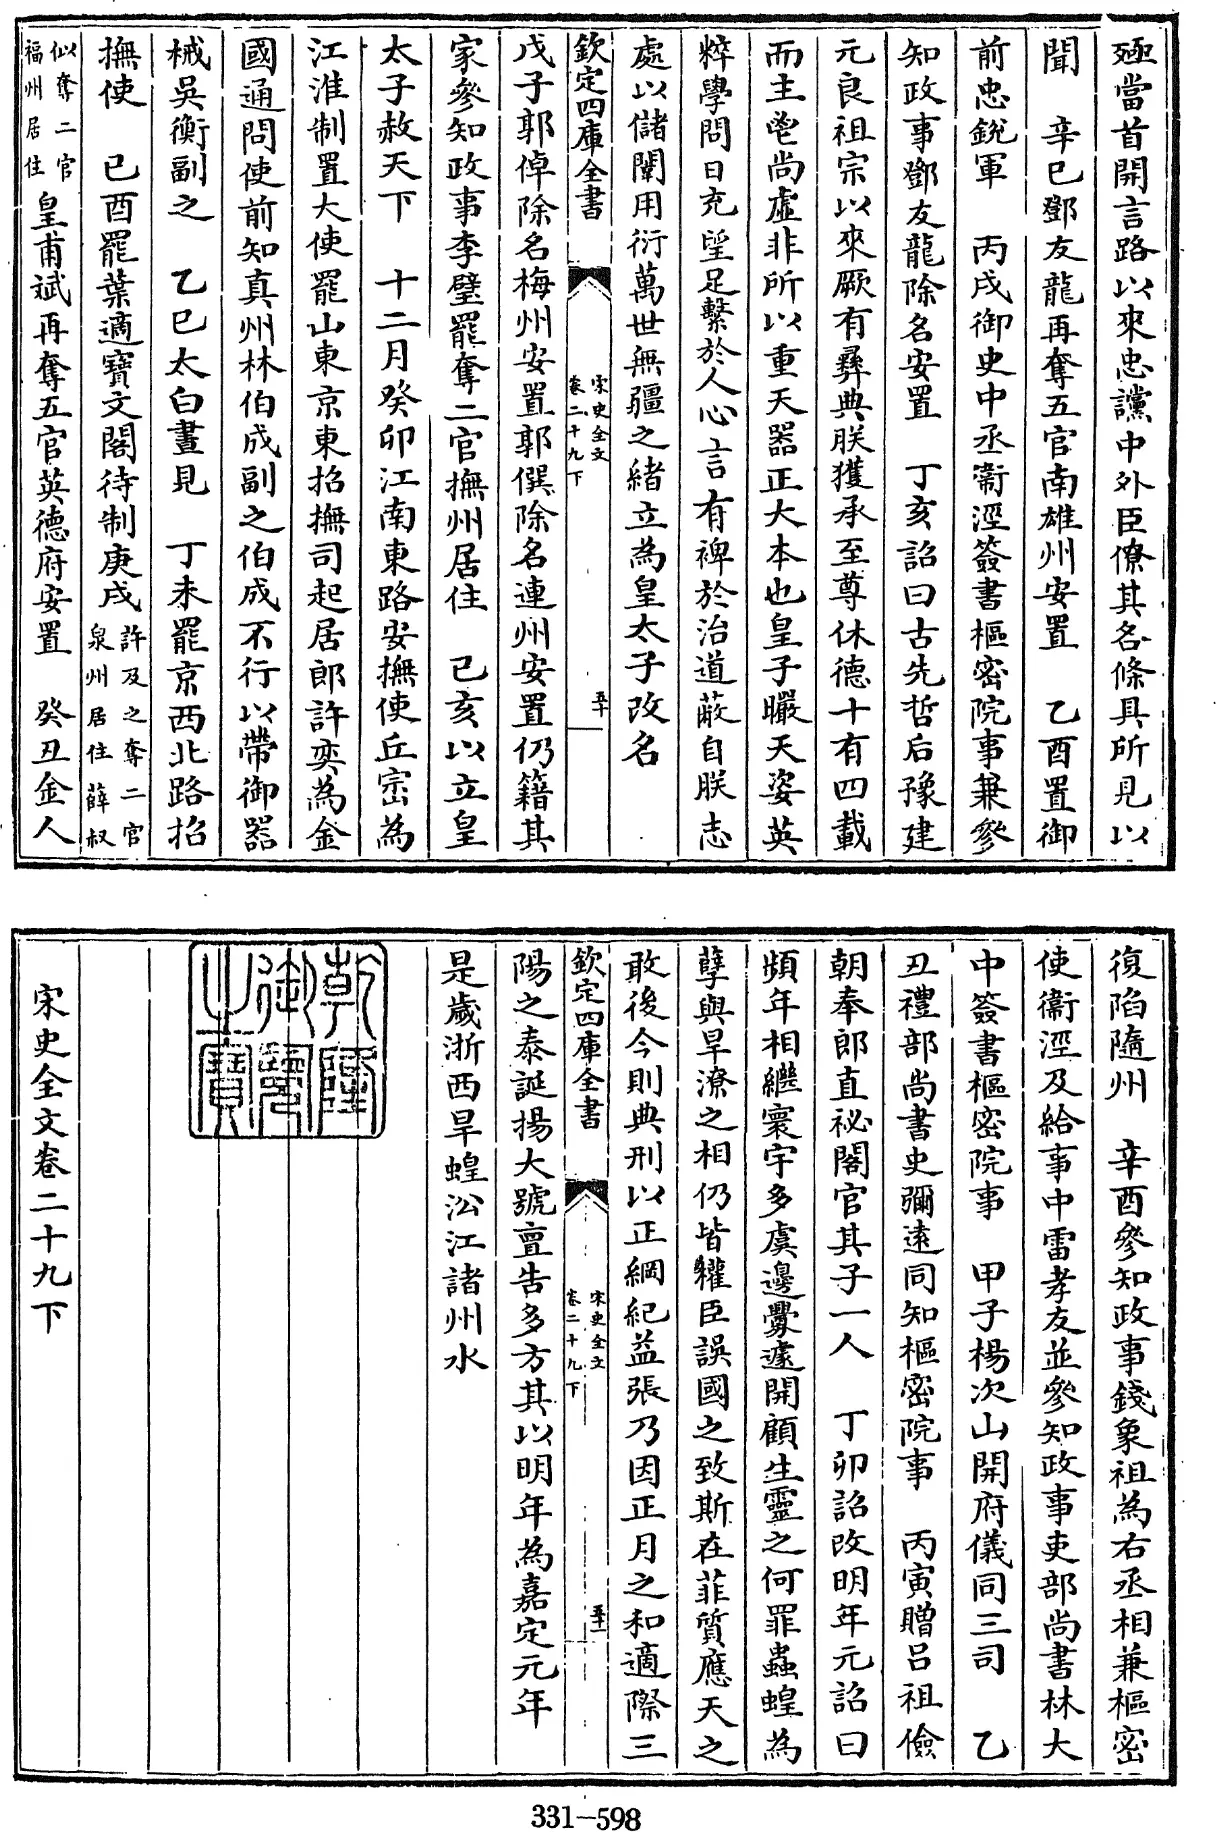 殛當首開言路以來忠讜中外臣僚其名條具所見以
聞　辛巳鄧友龍再奪五官南雄州安置　乙酉置御
前忠銳軍　丙戌御史中丞衛涇簽書樞密院事兼參
知政事鄧友龍除名安置　丁亥詔曰古先哲后豫建
元良祖宗以來厥有彞典朕獲承至尊休德十有四載
而主鬯尚虛非所以重天器正大本也皇子𣈶天姿英
粹學問日充望足繫於人心言有裨於治道蔽自朕志
處以儲闈用衍萬世無疆之緒立為皇太子改名
欽定四庫全書
宋史全文
卷二十九下
五十
戊子郭倬除名梅州安置郭僎除名連州安置仍籍其
家參知政事李壁罷奪二官撫州居住　己亥以立皇
太子赦天下　十二月癸卯江南東路安撫使丘崈為
江淮制置大使罷山東京東招撫司起居郎許奕為金
國通問使前知真州林伯成副之伯成不行以帶御器
械吳衡副之　乙巳太白晝見　丁未罷京西北路招
撫使　己酉罷葉適寶文閣待制庚戌許及之奪二官
泉州居住薛叔
似奪二官
福州居住皇甫斌再奪五官英德府安置　癸丑金人
復陷隨州　辛酉參知政事錢象祖為右丞相兼樞密
使衛涇及給事中雷孝友並參知政事吏部尚書林大
中簽書樞密院事　甲子楊次山開府儀同三司　乙
丑禮部尚書史彌遠同知樞密院事　丙寅贈呂祖儉
朝奉郎直祕閣官其子一人　丁卯詔改明年元詔曰
頻年相繼寰宇多虞邊釁遽開顧生靈之何罪蟲蝗為
孽與旱潦之相仍皆權臣誤國之致斯在菲質應天之
敢後今則典刑以正綱紀益張乃因正月之和適際三
欽定四庫全書
宋史全文
卷二十九下
五十一
陽之泰誕揚大號亶告多方其以明年為嘉定元年
是歲浙西旱蝗沿江諸州水
乾隆
御覽
之寶
宋史全文卷二十九下
331-598